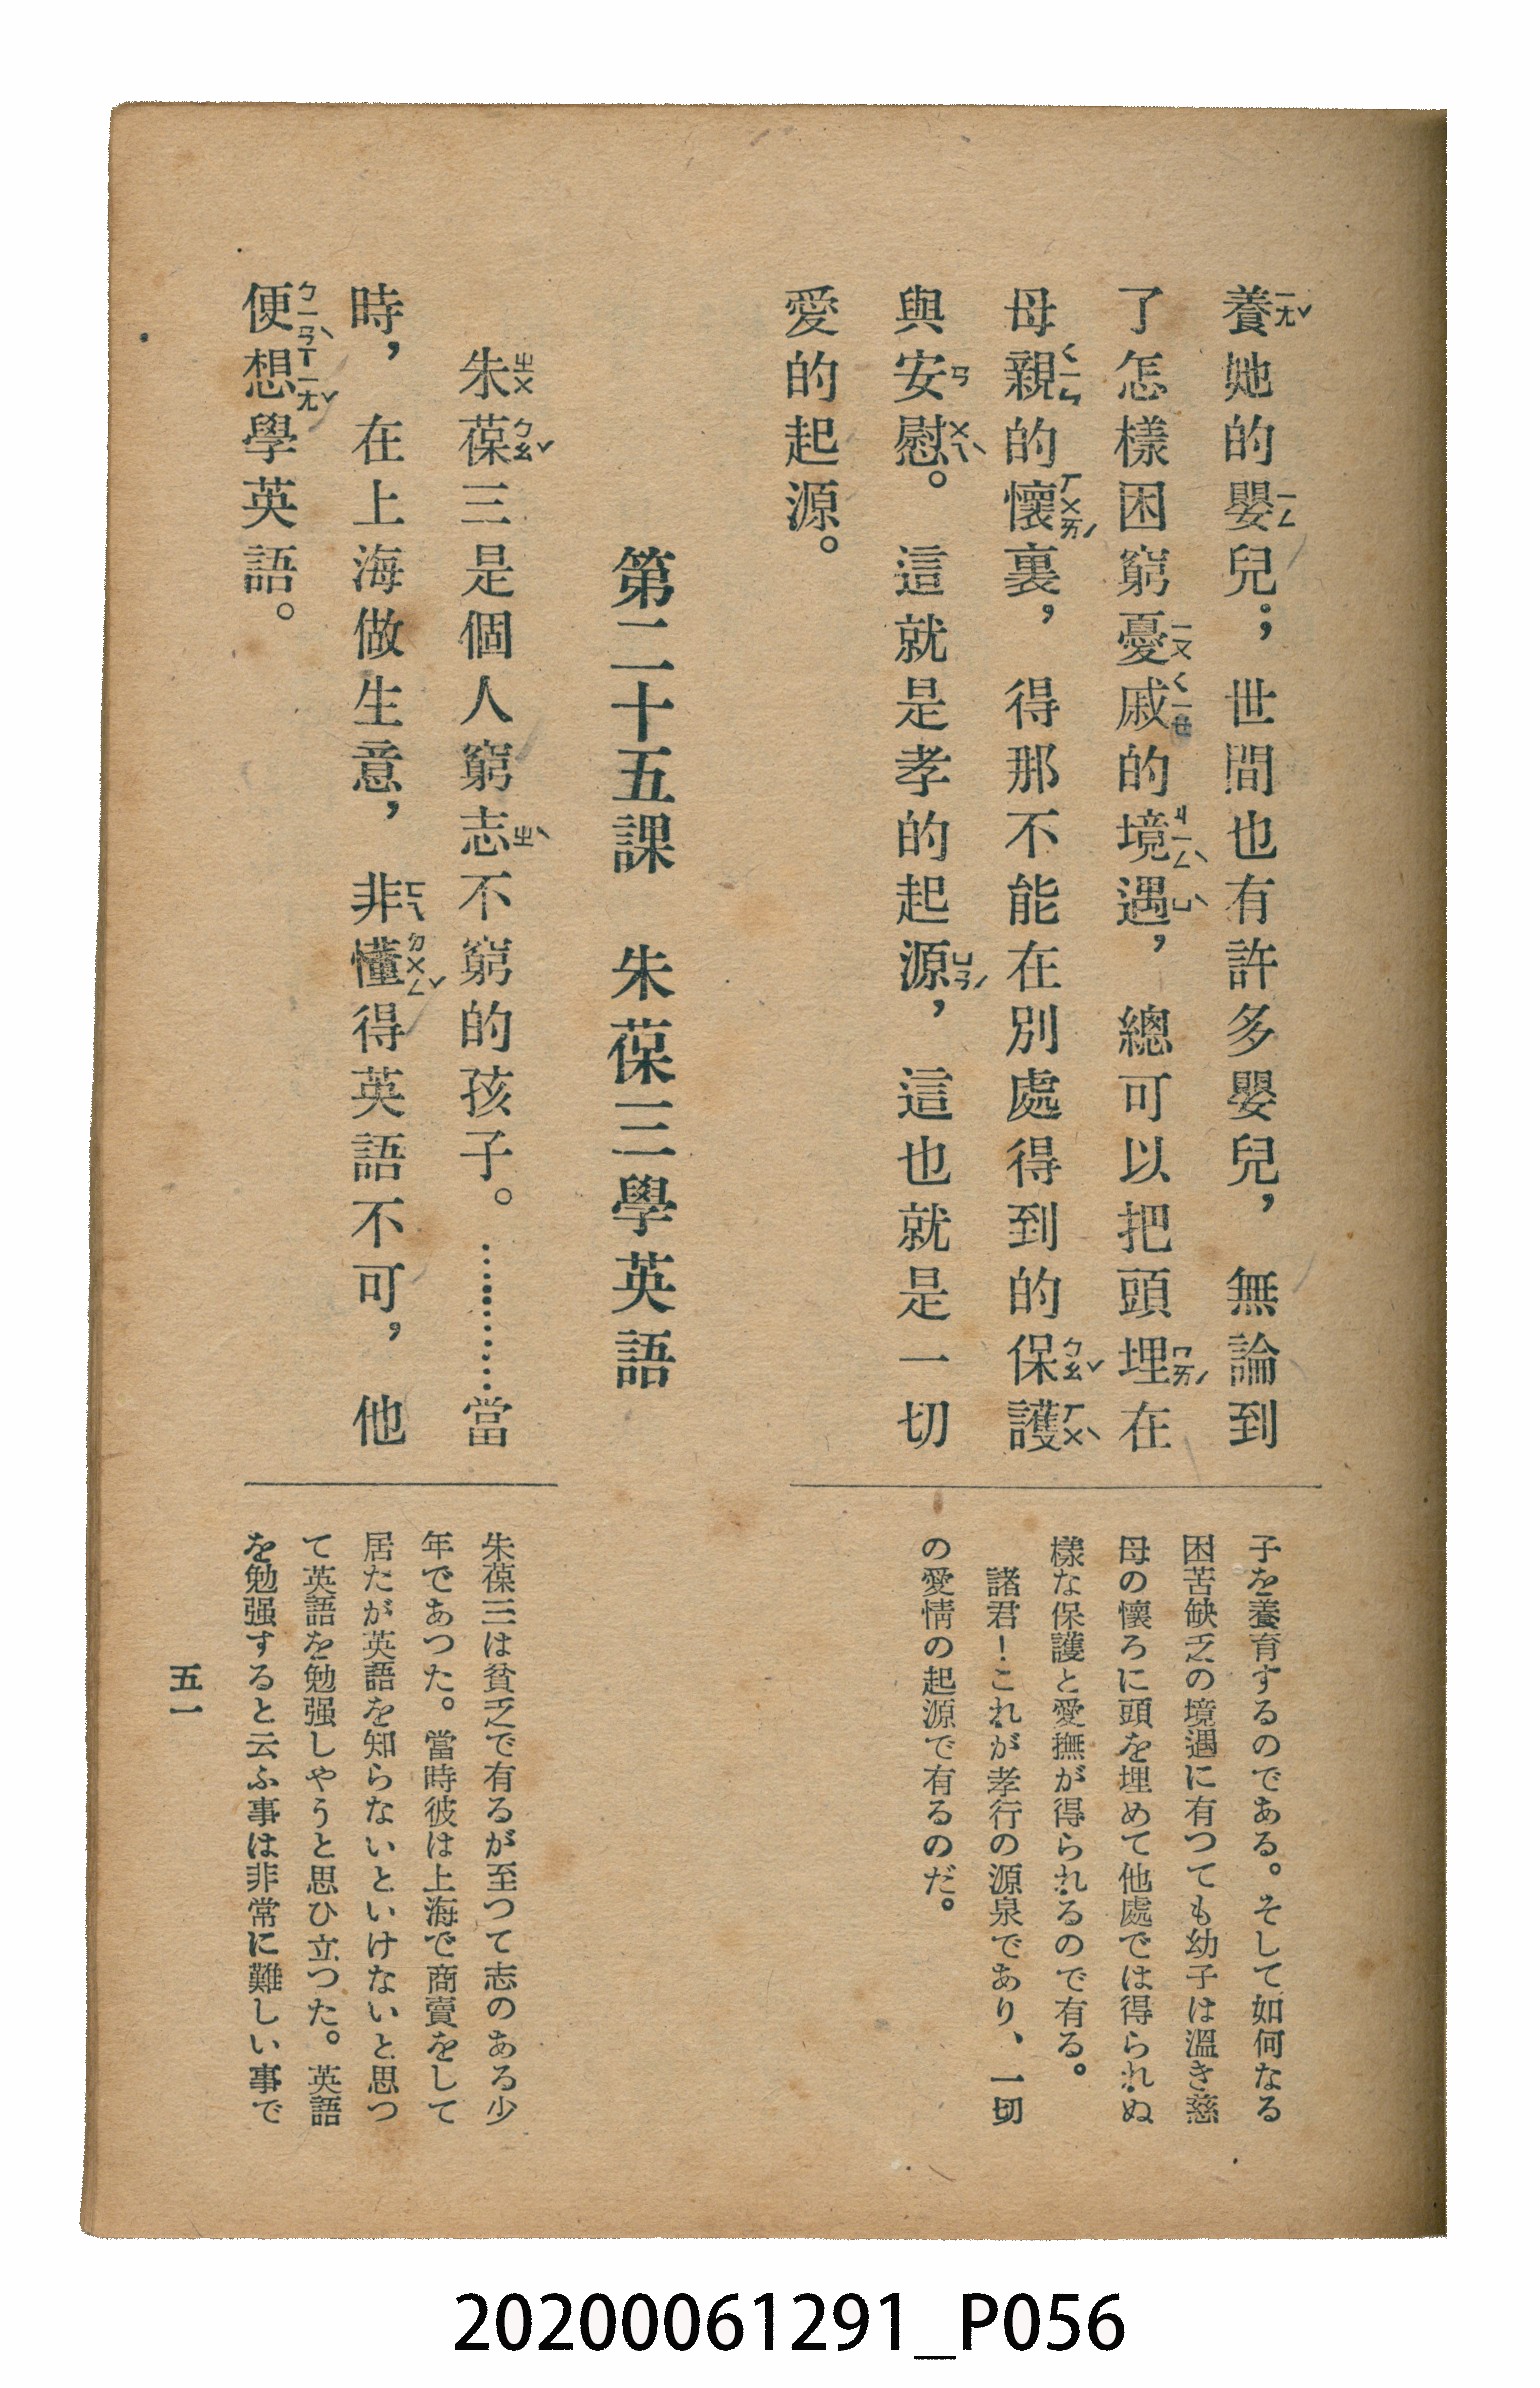 養她的嬰兒；世間也有許多嬰兒，無論到
ㄧㄤˇ ㄧㄥ
了怎樣困窮憂戚的境遇，總可以把頭埋在
ㄧㄡ ㄑㄧ ㄐㄧㄥˋ ㄩˋ ㄇㄞˊ
母親的懷裏，得那不能在別處得到的保護
ㄑㄧㄣ ㄏㄨㄞˊ ㄅㄠˇ ㄏㄨˋ
與安慰。這就是孝的起源，這也就是一切
ㄢ ㄨㄟˋ ㄩㄢˊ
愛的起源。
子を養育するのである。そして如何なる
困苦缺乏の境遇に有つても幼子は溫き慈
母の懷ろに頭を埋めて他處では得られぬ
樣な保護と愛撫が得られるので有る。
諸君！これが孝行の源泉であり、一切
の愛情の起源で有るのだ。
第二十五課 朱葆三學英語
朱葆三是個人窮志不窮的孩子。…………當
ㄓㄨ ㄅㄠˇ ㄓˋ
時，在上海做生意，非懂得英語不可，他
ㄈㄟ ㄉㄨㄥˇ
便想學英語。
ㄅㄧㄢˋ ㄒㄧㄤˇ
朱葆三は貧乏で有るが至つて志のある少
年であつた。當時彼は上海で商賣をして
居たが英語を知らないといけないと思つ
て英語を勉强しやうと思ひ立つた。英語
を勉强すると云ふ事は非常に難しい事で
五一
20200061291_P056